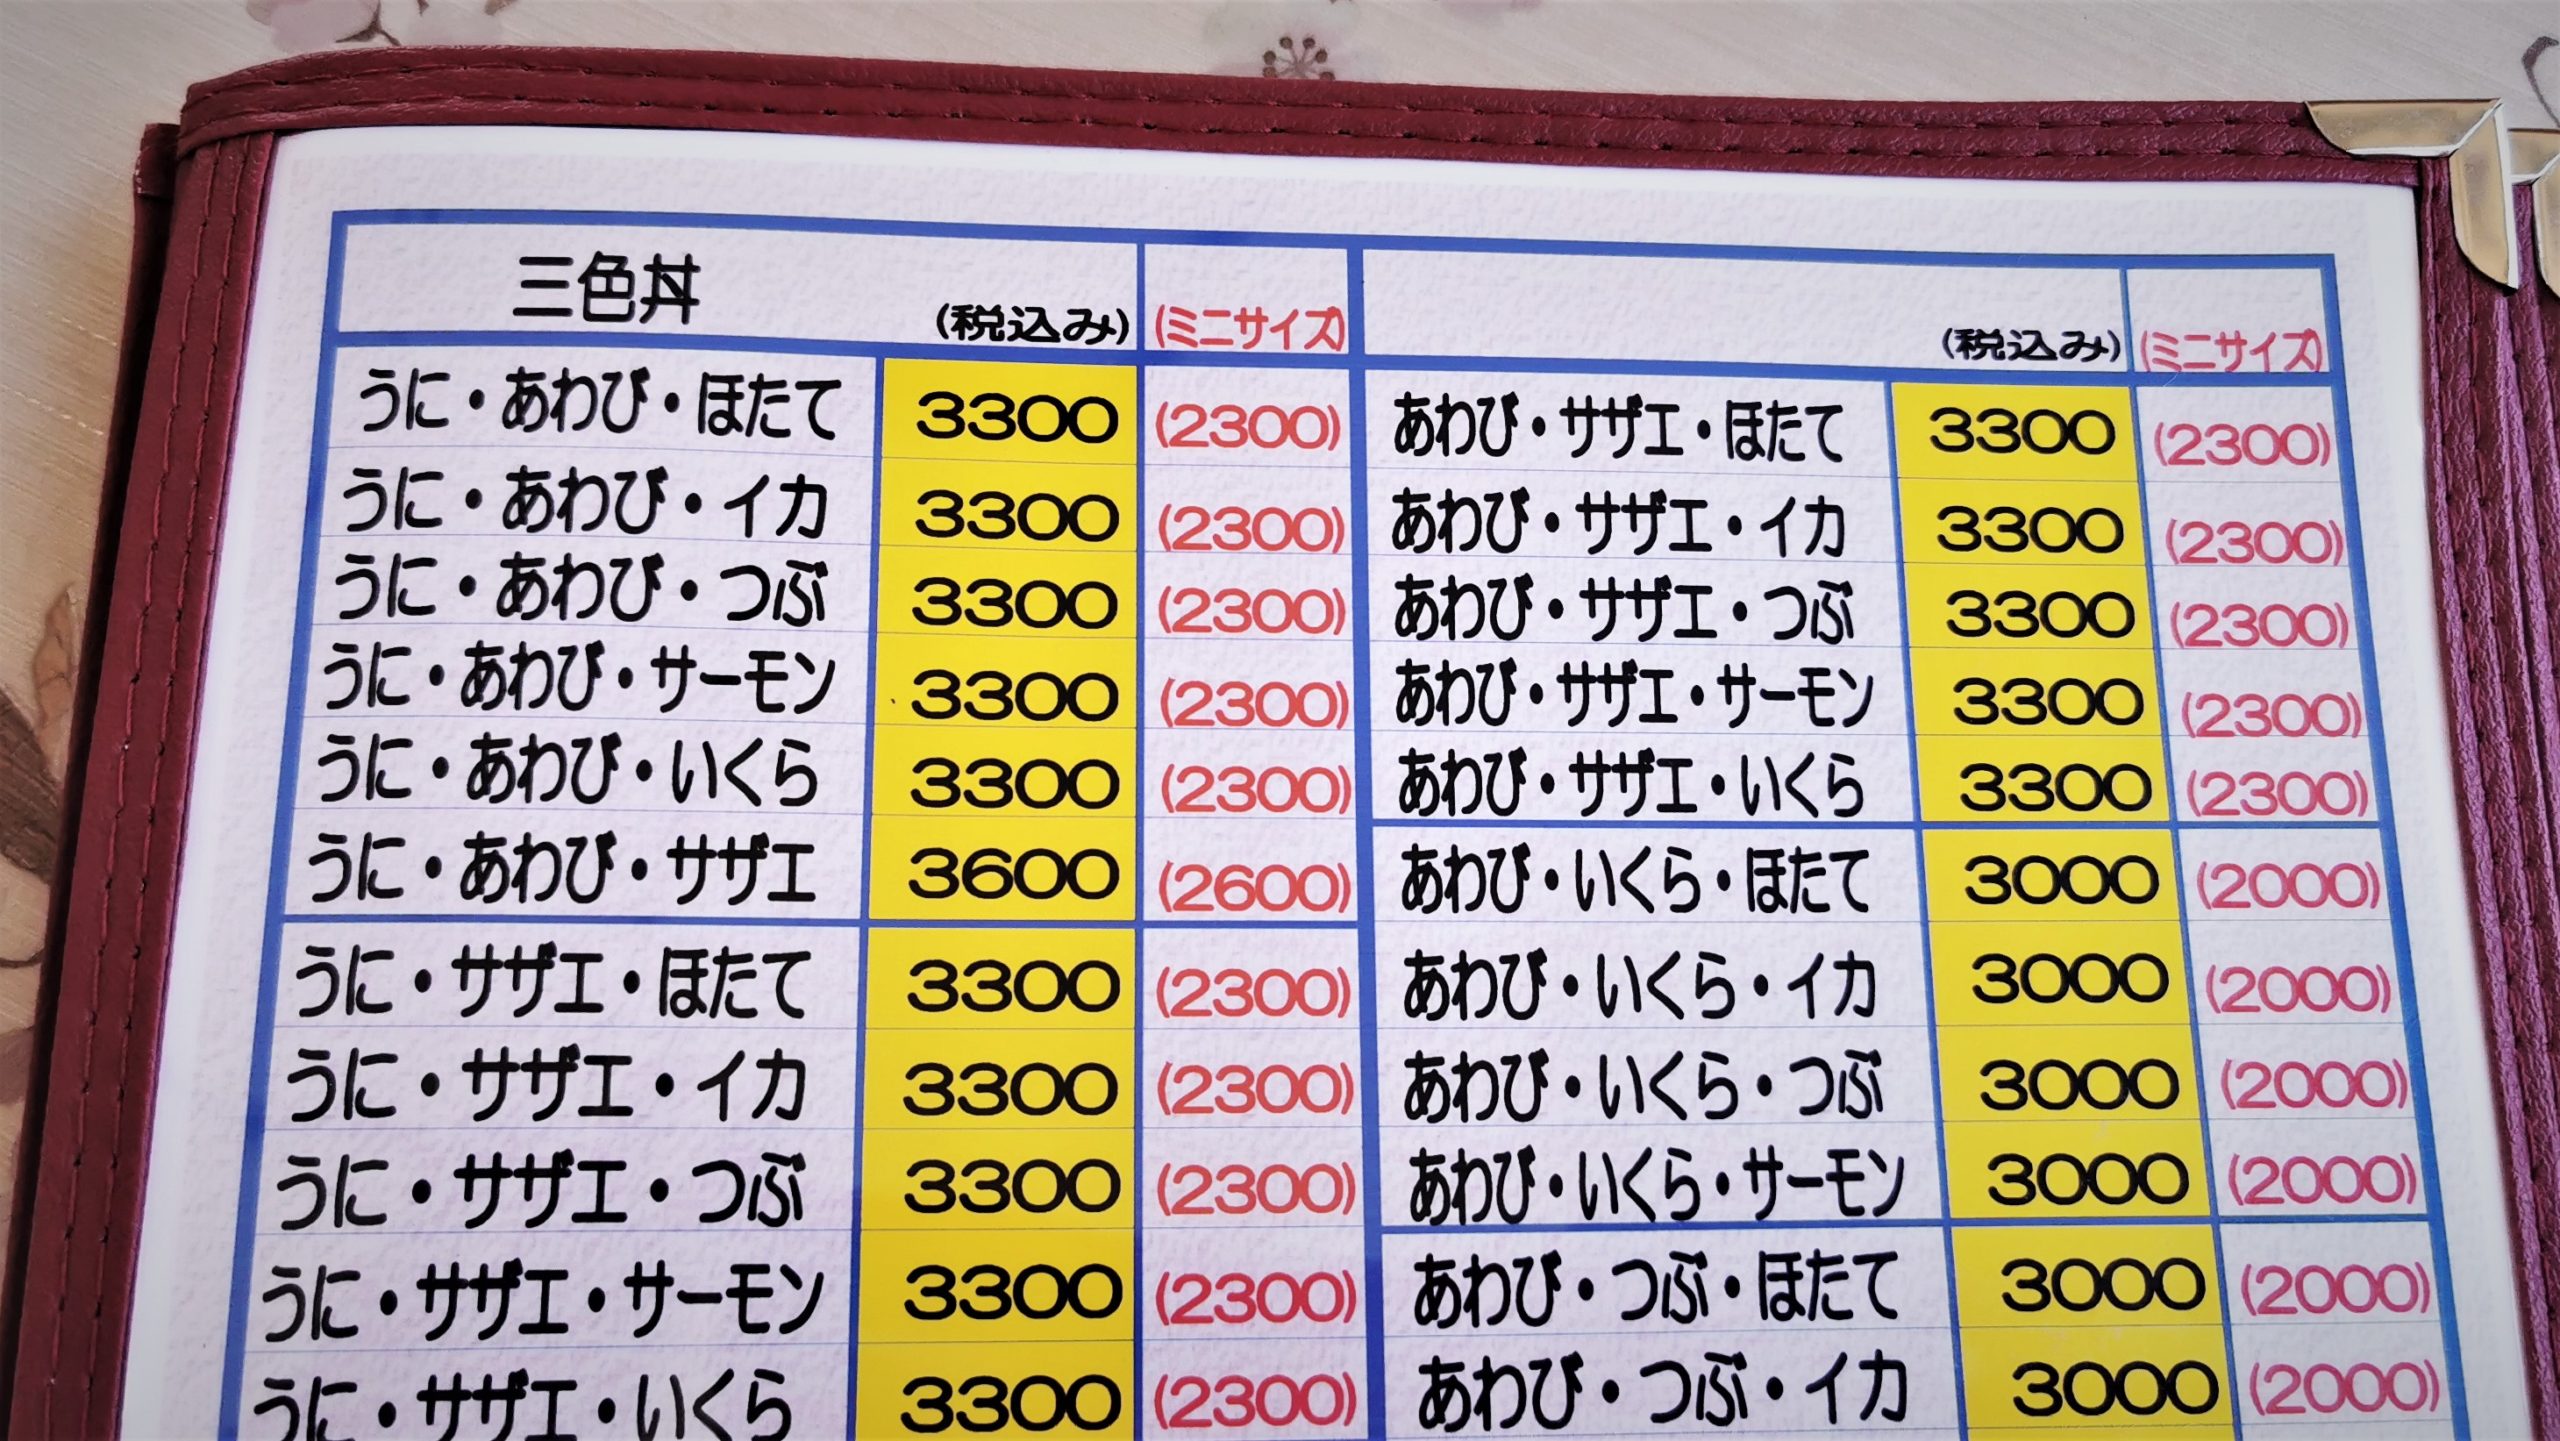 三色丼 (税込み) (ミニサイズ)
うに・あわび・ほたて 3300 (2300)
うに・あわび・イカ 3300 (2300)
うに・あわび・つぶ 3300 (2300)
うに・あわび・サーモン 3300 (2300)
うに・あわび・いくら 3300 (2300)
うに・あわび・サザエ 3600 (2600)
うに・サザエ・ほたて 3300 (2300)
うに・サザエ・イカ 3300 (2300)
うに・サザエ・つぶ 3300 (2300)
うに・サザエ・サーモン 3300 (2300)
うに・サザエ・いくら 3300 (2300)
(税込み) (ミニサイズ)
あわび・サザエ・ほたて 3300 (2300)
あわび・サザエ・イカ 3300 (2300)
あわび・サザエ・つぶ 3300 (2300)
あわび・サザエ・サーモン 3300 (2300)
あわび・サザエ・いくら 3300 (2300)
あわび・いくら・ほたて 3000 (2000)
あわび・いくら・イカ 3000 (2000)
あわび・いくら・つぶ 3000 (2000)
あわび・いくら・サーモン 3000 (2000)
あわび・つぶ・ほたて 3000 (2000)
あわび・つぶ・イカ 3000 (2000)